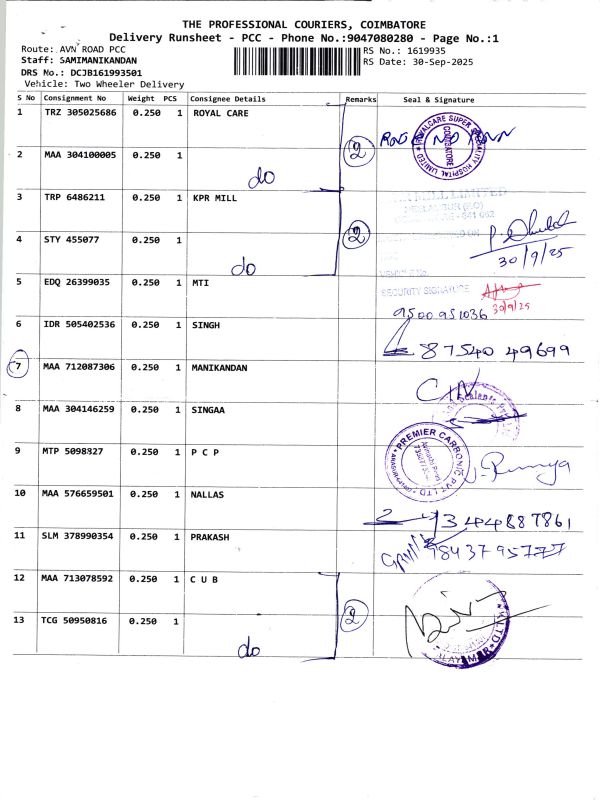 THE PROFESSIONAL COURIERS, COIMBATORE
Delivery Runsheet - PCC - Phone No.:9047080280 - Page No.:1
Route: AVN ROAD PCC
RS No.: 1619935
Staff: SAMIMANIKANDAN
RS Date: 30-Sep-2025
DRS No.: DCJB161993501
Vehicle: Two Wheeler Delivery
S No Consignment No Weight PCS Consignee Details Remarks Seal & Signature
1 TRZ 305025686 0.250 1 ROYAL CARE
2 MAA 304100005 0.250 1 do 2
3 TRP 6486211 0.250 1 KPR MILL
4 STY 455077 0.250 1 do 2
30/9/25
5 EDQ 26399035 0.250 1 MTI
SECURITY SIGNATURE
30/9/25
9500951036
6 IDR 505402536 0.250 1 SINGH
87540 49699
7 MAA 712087306 0.250 1 MANIKANDAN
8 MAA 304146259 0.250 1 SINGAA
9 MTP 5098327 0.250 1 P C P
PREMIER CARBONIC PVT LTD
10 MAA 576659501 0.250 1 NALLAS
11 SLM 378990354 0.250 1 PRAKASH
9843795777
12 MAA 713078592 0.250 1 C U B
13 TCG 50950816 0.250 1 do 2